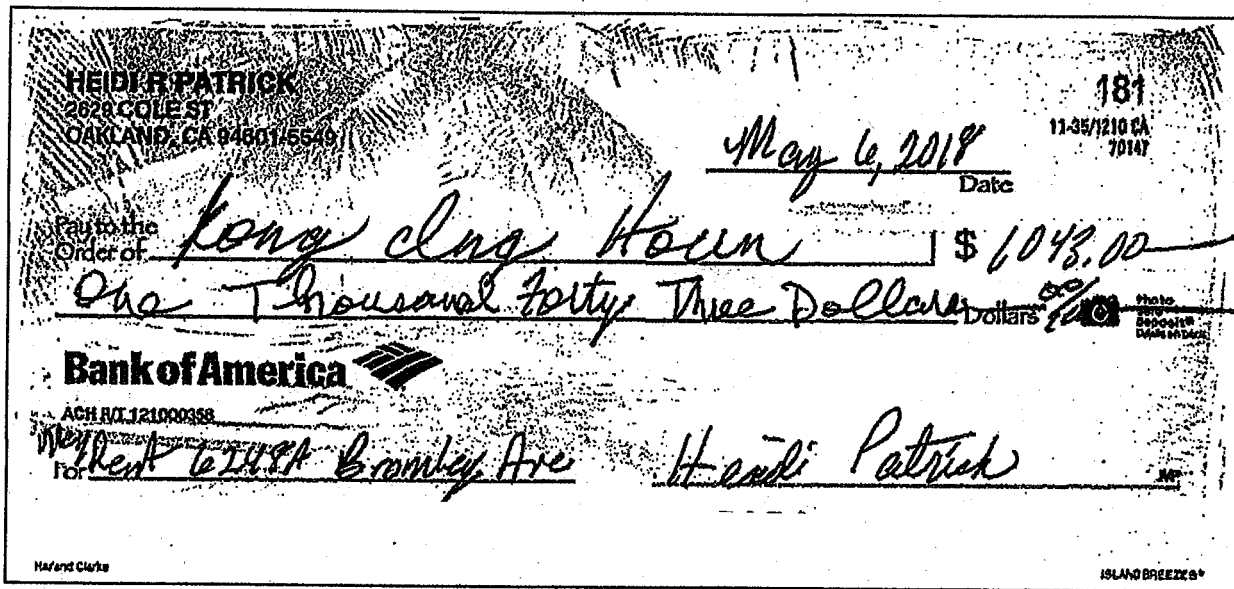 HEIDI R PATRICK
2629 COLE ST
OAKLAND, CA 94601-5549
181
11-35/1210 CA
70147
May 6, 2018
Date
Pay to the
Order of Kong Ing Houn $ 1043.00
One Thousand Forty Three Dollars Dollars
Photo
Safe
Deposit®
Details on back
Bank of America
ACH R/T 121000358
May
For Rent 6248A Bromley Ave Heidi Patrick MP
Harland Clarke
ISLAND BREEZES®